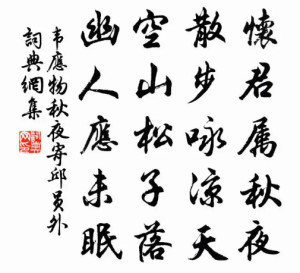 懷君属秋夜
散步咏涼天
空山松子落
幽人應未眠
韦應物秋夜寄邱員外
詞典網集